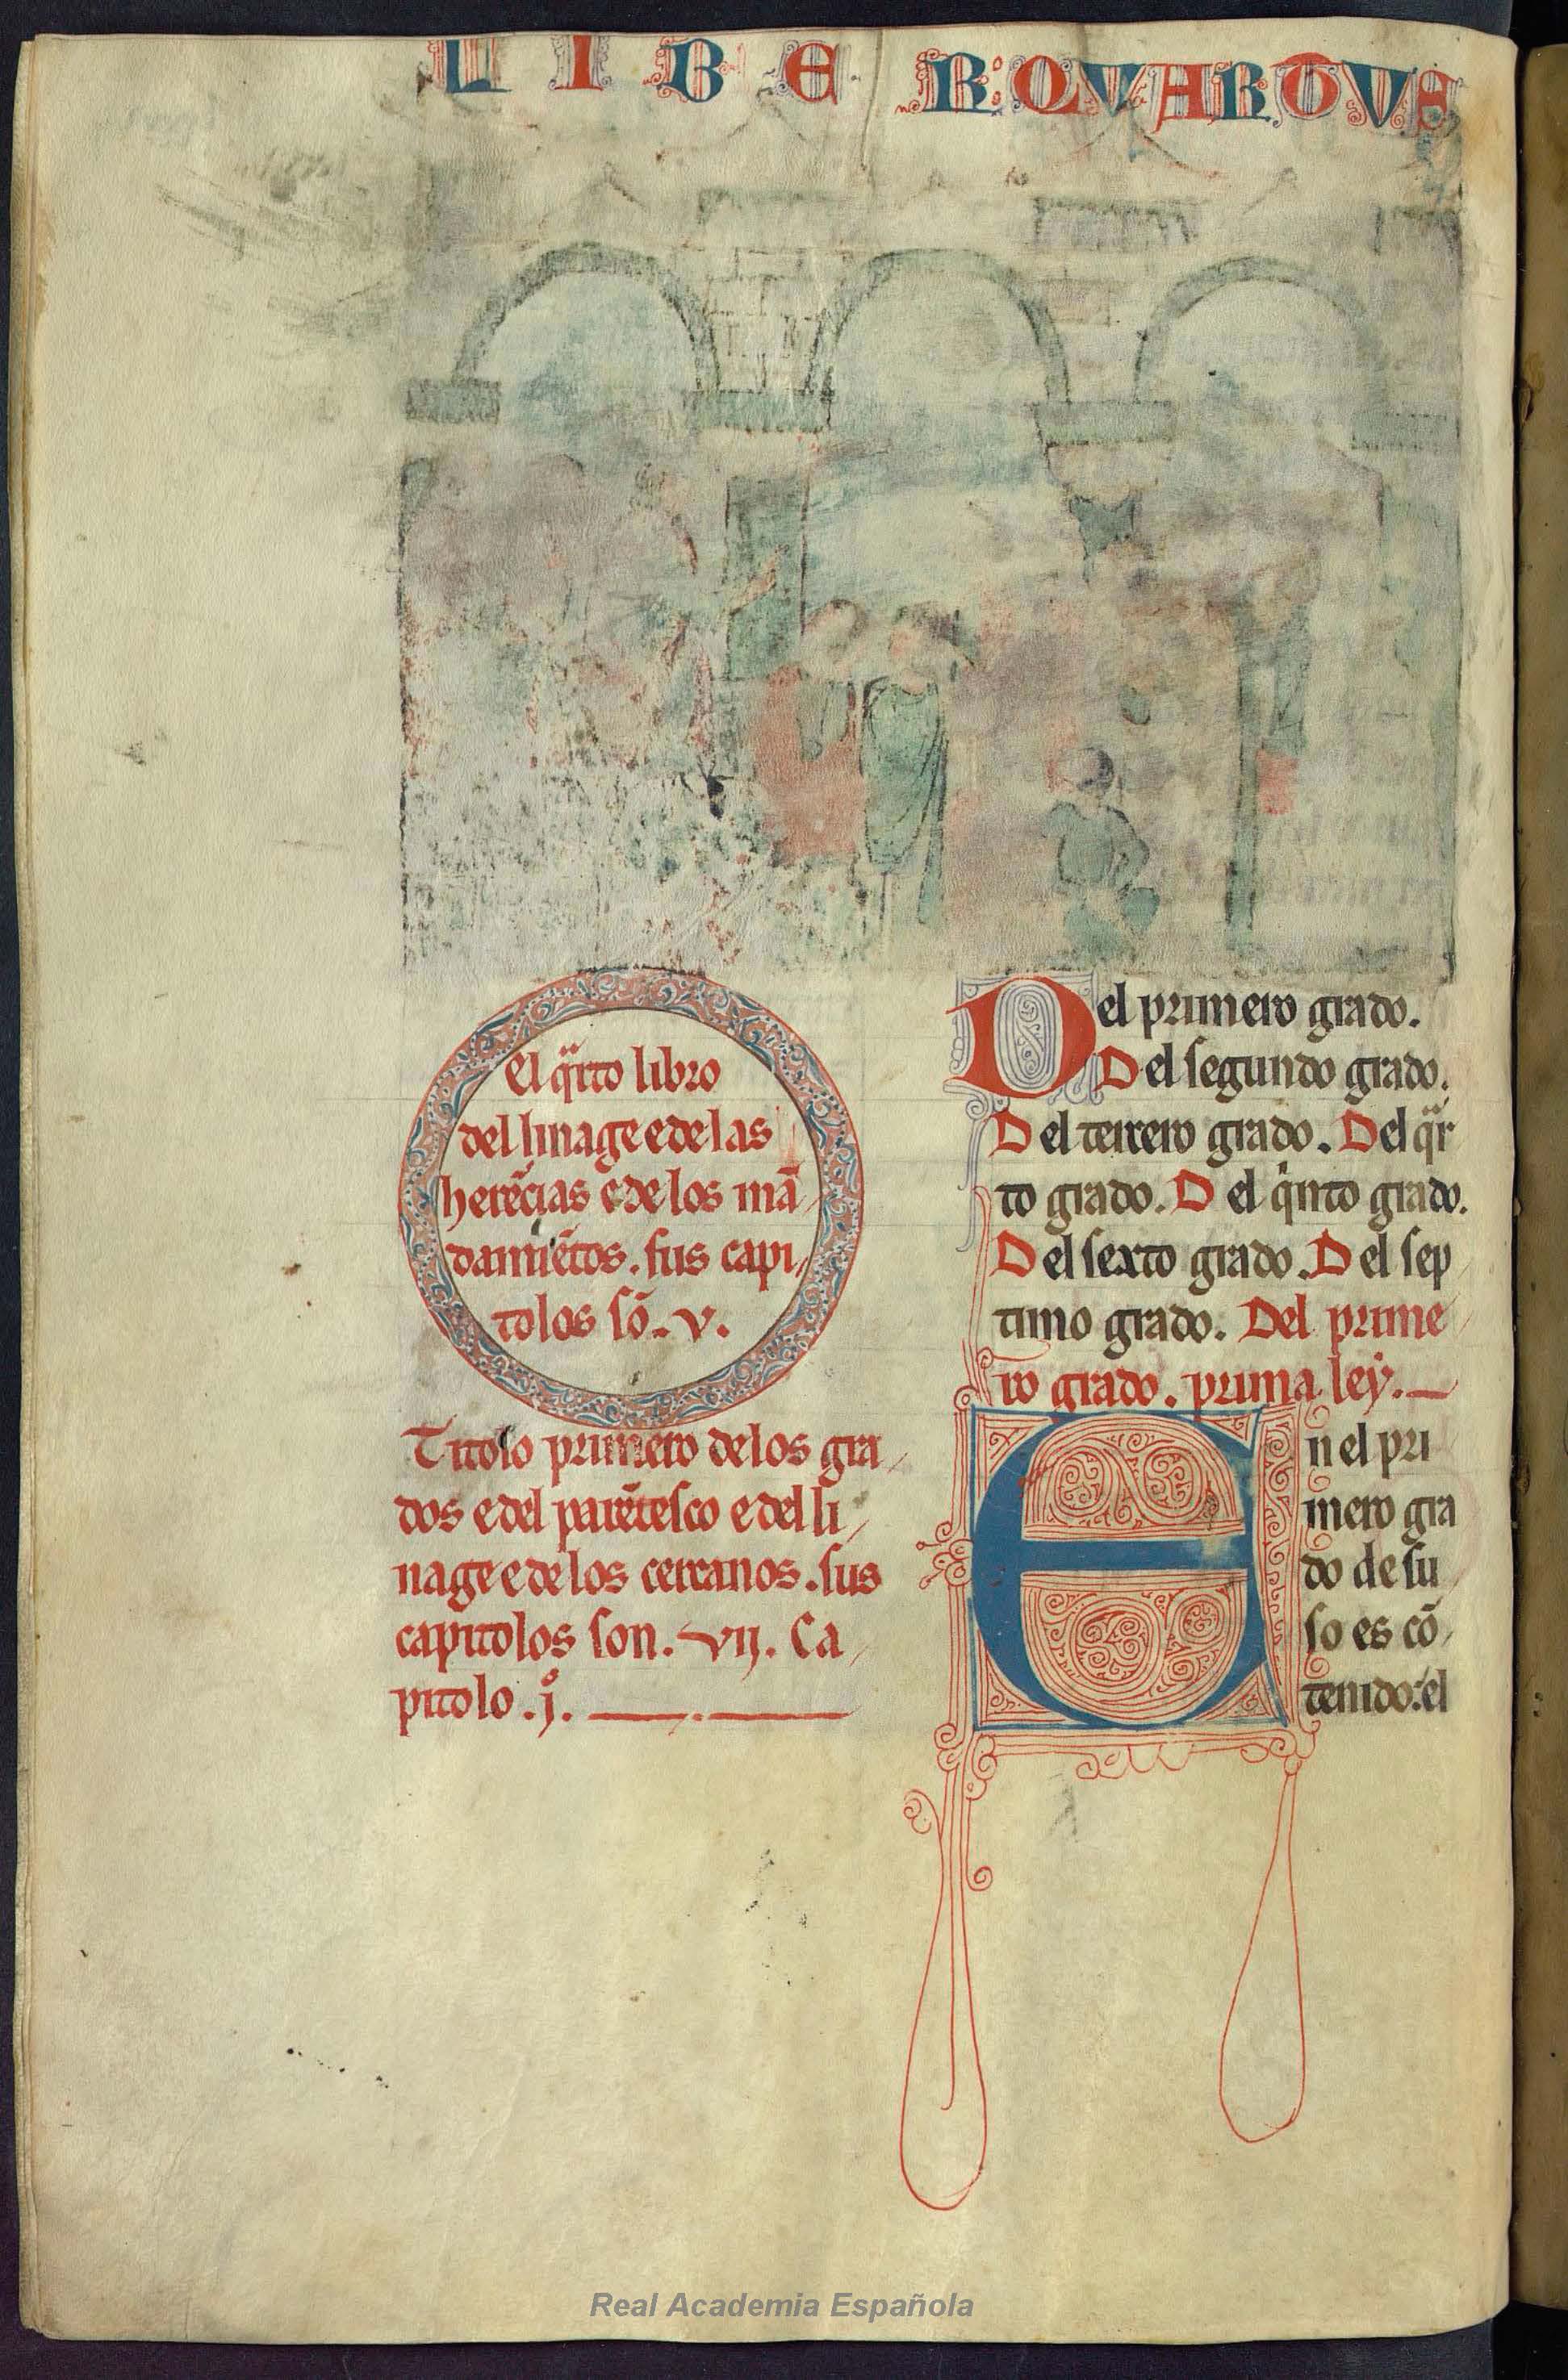 LIBER: QVARTVS
El q̈rto libro
del linage e de las
herẽcias e de los mã
damiẽtos. sus capi
tolos sõ. v.
Titolo primero de los gra
dos e del parẽtesco e del li
nage e de los cercanos. sus
capitolos son. vij. Ca
pitolo .j̊.
Del primero grado.
Del segundo grado.
Del tercero grado. Del q̈r
to grado. Del q̍nto grado.
Del sexto grado. Del sep
timo grado. Del prime
ro grado. prima ley.
En el pri
mero gra
do de su
so es cõ
tenido: el
Real Academia Española